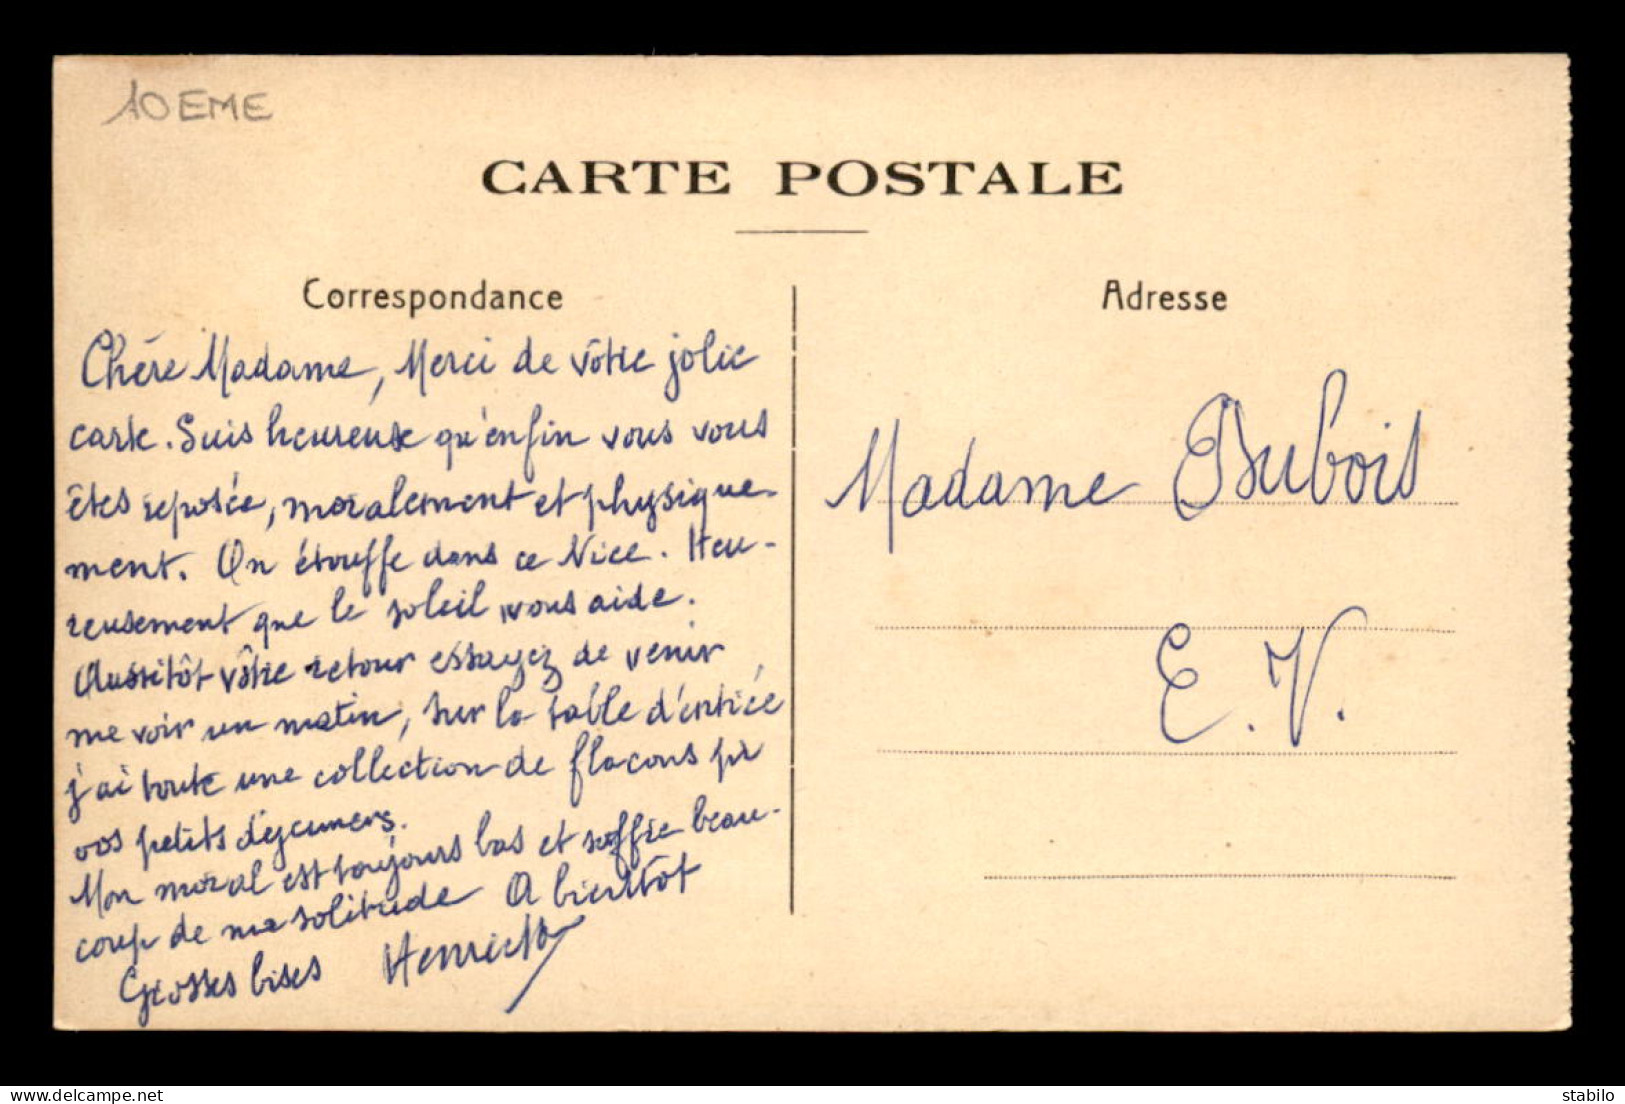 10 EME
CARTE POSTALE
Correspondance
Chère Madame, Merci de vôtre jolie
carte. Suis heureuse qu'enfin vous vous
êtes reposée, moralement et physique-
ment. On étouffe dans ce Nice. Heu-
reusement que le soleil vous aide.
Aussitôt vôtre retour essayez de venir
me voir un matin, sur la table d'entrée
j'ai toute une collection de flacons pr
vos petits déjeuners.
Mon moral est toujours bas et souffre beau-
coup de ma solitude A bientôt
Grosses bises Henrietta
Adresse
Madame Dubois
E. V.
Delcampe.net
stabilo